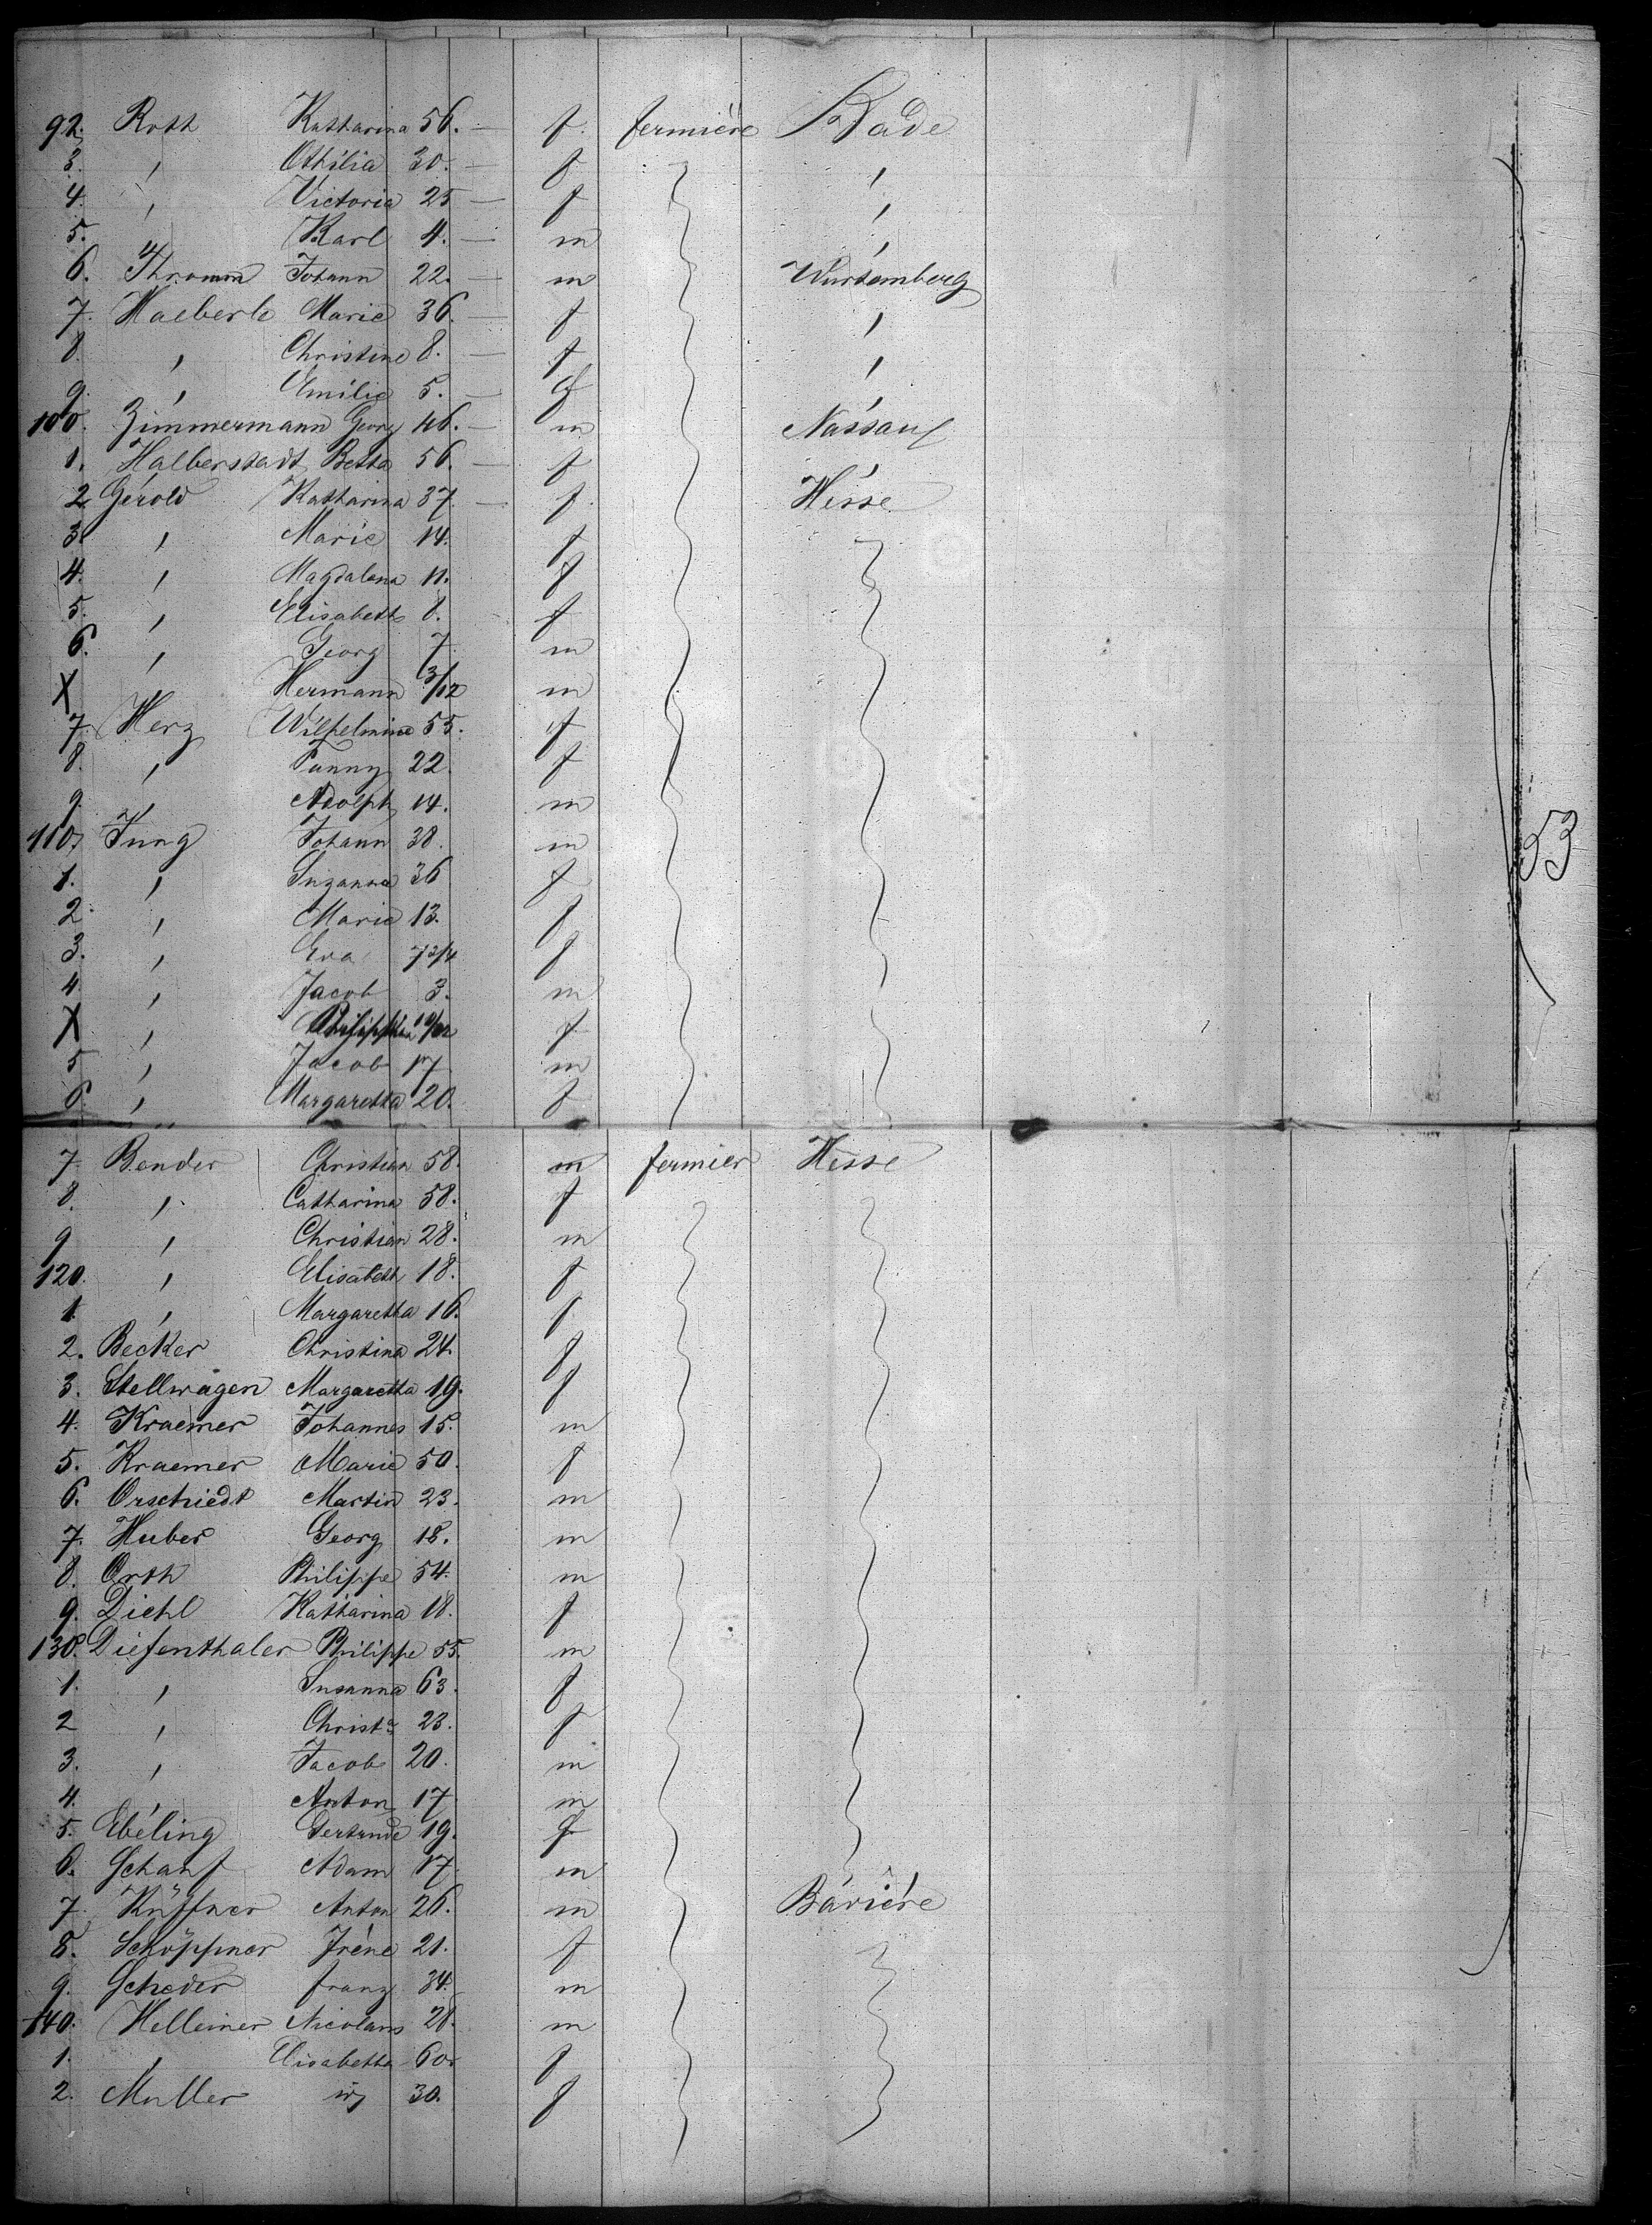 92. Roth Katharina 56. — f. fermière Bade
3. , Othilia 30. — f ,
4. , Victoria 25 — f ,
5. " Karl 4. — m ,
6. Thromm Johann 22. — m Wurtemberg
7. Haeberle Marie 36. — f ,
8. , Christine 8. — f ,
9. , Emilie 5. — f ,
100. Zimmermann Georg 46. — m Nassau
1. Halberstadt Betta 56. — f ,
2 Gerold Katharina 37. — f. Hesse
3. , Marie 14. f
4. , Magdalena 11. f
5. , Elisabeth 8. f
6. , Georg 7. m
X , Hermann 3/12 m
7. Herz Wilhelmine 55. f
8. , Fanny 22. f
9. , Adolph 14. m
110. Jung Johann 38. m
1. , Suzanna 36 f
2. , Marie 13. f
3. , Eva 7 3/4 f
4. , Jacob 3. m
X , 10/12 f
5 , Jacob 17 m
6 , Margaretta 20. f
53
7. Bender Christian 58. m fermier Hesse
8. , Catharina 58. f
9 , Christian 28. m
120. , Elisabeth 18. f
1. , Margaretha 16. f
2. Becker Christina 24. f
3. Stellwagen Margaretta 19. f
4. Kraemer Johannes 15. m
5. Kraemer Marie 50. f
6. Orschiedt Martin 23. m
7. Huber Georg 18. m
8. Orth Philippe 54. m
9. Diehl Katharina 18. f
130. Diefenthaler Philippe 55. m
1. , Susanna 63. f
2 , Christa 23. f
3. , Jacob 20. m
4. , Anton 17 m
5. Ebeling Gertrude 19. f
6. Schauf Adam 17 m
7. Küffner Anton 26. m Bavière
8. Schöppner Irène 21. f
9. Scheder Franz 34. m
140. Helleiner Nicolaus 28. m
1. , Elisabetha 60. f
2. Muller 30. f